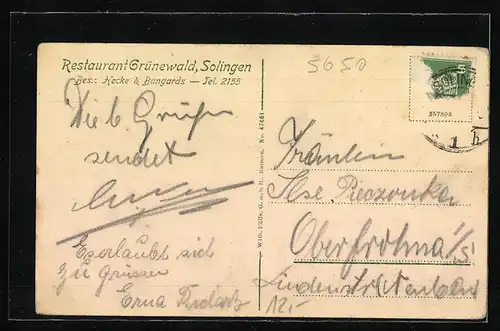 Restaurant Grünewald, Solingen
Bes.: Hecke & Bungards — Tel. 2155
5650
Viele Grüße
sendet
Es erlaubt sich
zu grüssen
Erna
Wilh. Fülle, G. m. b. H., Barmen. No. 47661
357808
1 h
Fräulein
Ilse Pieczonka
Oberfrohna i/S
12.-